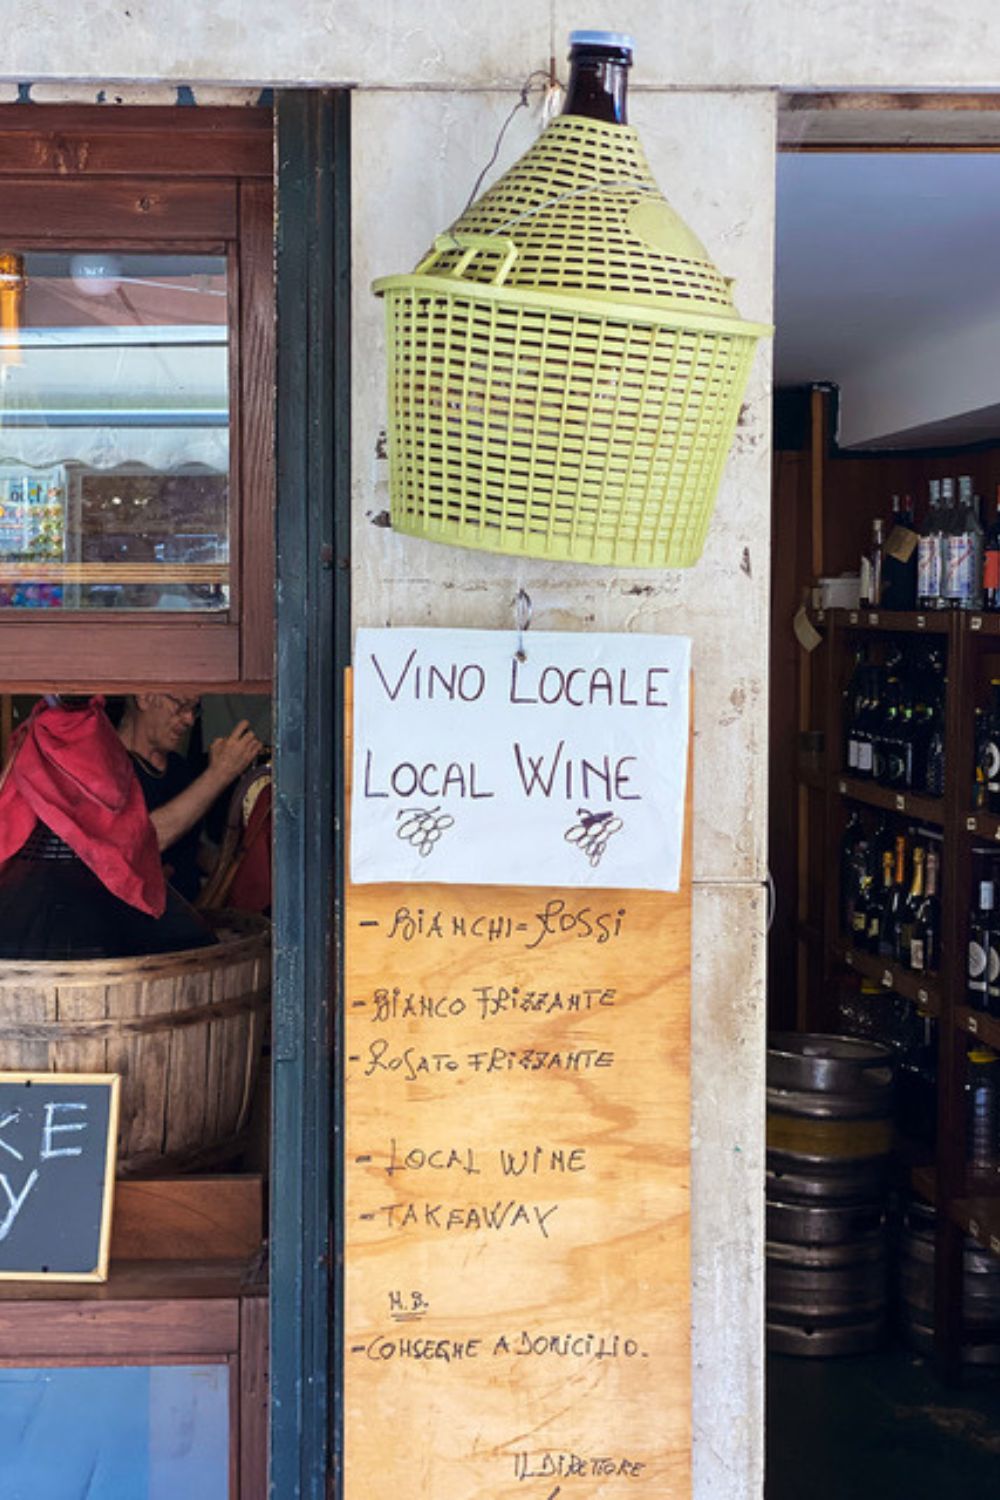 VINO LOCALE
LOCAL WINE
- BIANCHI = ROSSI
- BIANCO FRIZZANTE
- ROSATO FRIZZANTE
- LOCAL WINE
- TAKEAWAY
N.B.
- CONSEGNE A DOMICILIO.
IL DIRETTORE
KE
Y